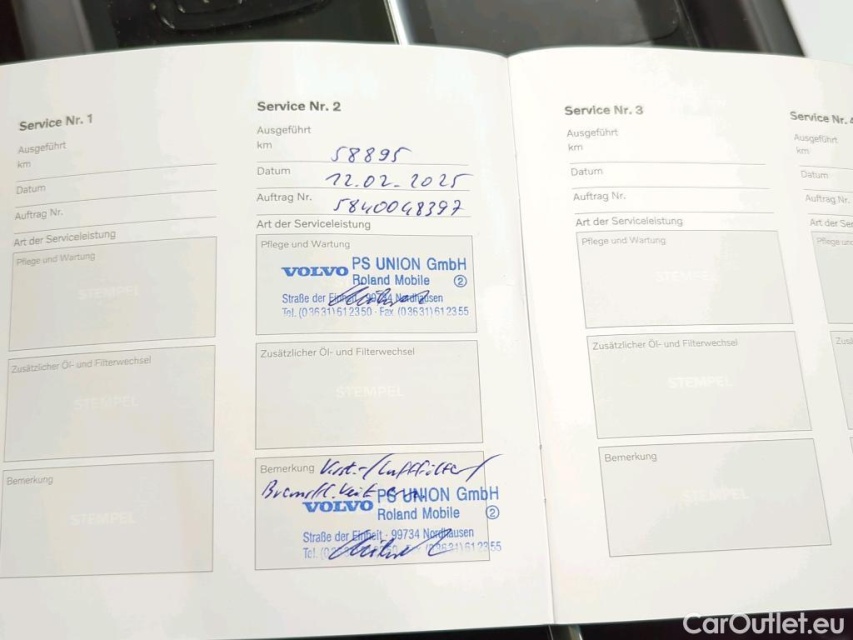 Service Nr. 1
Ausgeführt
km
Datum
Auftrag Nr.
Art der Serviceleistung
Pflege und Wartung
STEMPEL
Zusätzlicher Öl- und Filterwechsel
STEMPEL
Bemerkung
STEMPEL
Service Nr. 2
Ausgeführt
km 58895
Datum 12.02.2025
Auftrag Nr. 5840048397
Art der Serviceleistung
Pflege und Wartung
VOLVO PS UNION GmbH
Roland Mobile 2
Straße der Einheit · 99734 Nordhausen
Tel. (03631) 612350 · Fax (03631) 612355
Zusätzlicher Öl- und Filterwechsel
STEMPEL
Bemerkung
VOLVO PS UNION GmbH
Roland Mobile 2
Straße der Einheit · 99734 Nordhausen
Tel. 612355
Service Nr. 3
Ausgeführt
km
Datum
Auftrag Nr.
Art der Serviceleistung
Pflege und Wartung
STEMPEL
Zusätzlicher Öl- und Filterwechsel
STEMPEL
Bemerkung
STEMPEL
Service Nr. 4
Ausgeführt
km
Datum
Auftrag Nr.
Art der Ser
Pflege un
Zusä
CarOutlet.eu